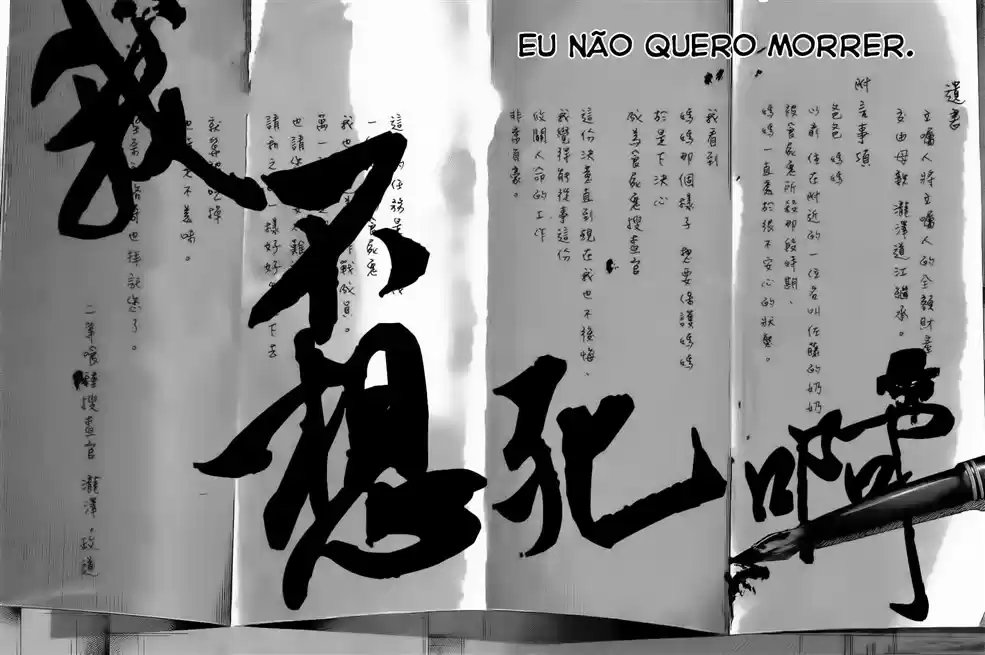 EU NÃO QUERO MORRER.
我不想死啊
遺書
立囑人將立囑人的全額財產
交由母親 瀧澤道江繼承。
附言事項
爸爸 媽媽
以前 住在附近的一位名叫佐藤的奶奶
被食屍鬼所殺那段時期、
媽媽一直處於很不安心的狀態。
我看到
媽媽那個樣子 想要保護媽媽
於是下決心
成為食屍鬼搜查官
這份決意直到現在我也不後悔、
我覺得能從事這份
攸關人命的工作
非常自豪。
也請您
請和之 一樣好好 下去
也 不美味。
也拜託您了。
二等喰種搜查官 瀧澤。政道